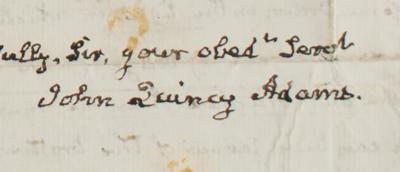 ully, Sir, your obedt. Servt.
John Quincy Adams.